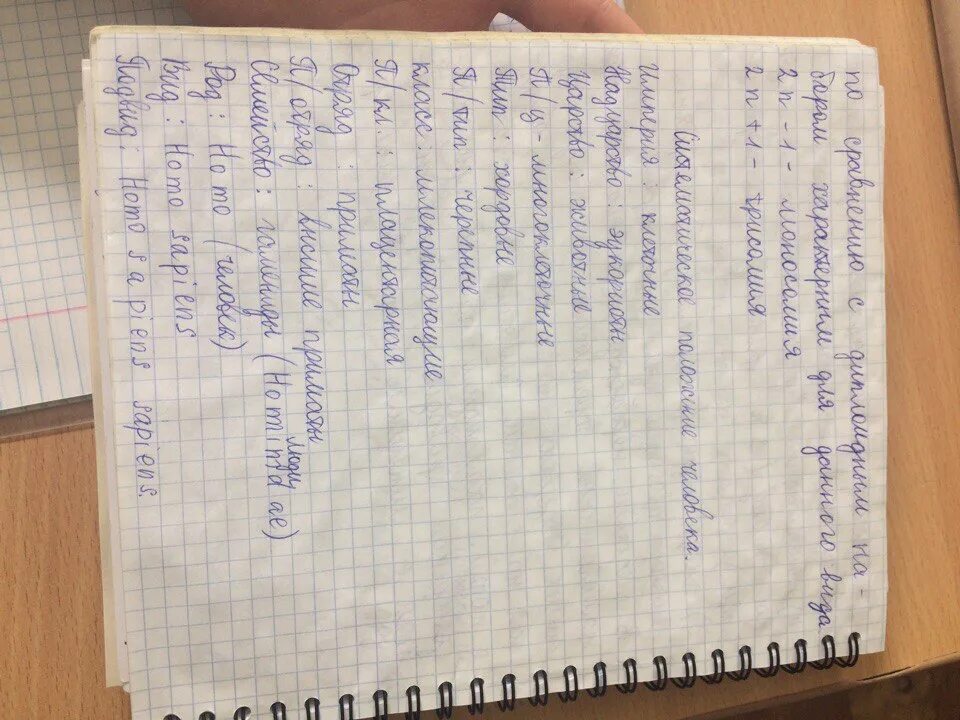 по сравнению с диплоидным на-
бором характерным для данного вида
2n - 1 - моносомия
2n + 1 - трисомия
Систематическое положение человека.
Империя : клеточные
Надцарство : эукариоты
Царство : животные
П/ц - многоклеточные
Тип : хордовые
П/тип : черепные
класс : млекопитающие
П/кл. : плацентарная
Отряд : приматы
П/отряд : высшие приматы
люди
Семейство : гоминиды (Hominidae)
Род : Homo (человек)
Вид : Homo sapiens
Подвид : Homo sapiens sapiens.